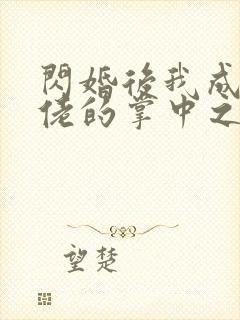 閃婚後我成
佬的掌中之
望楚